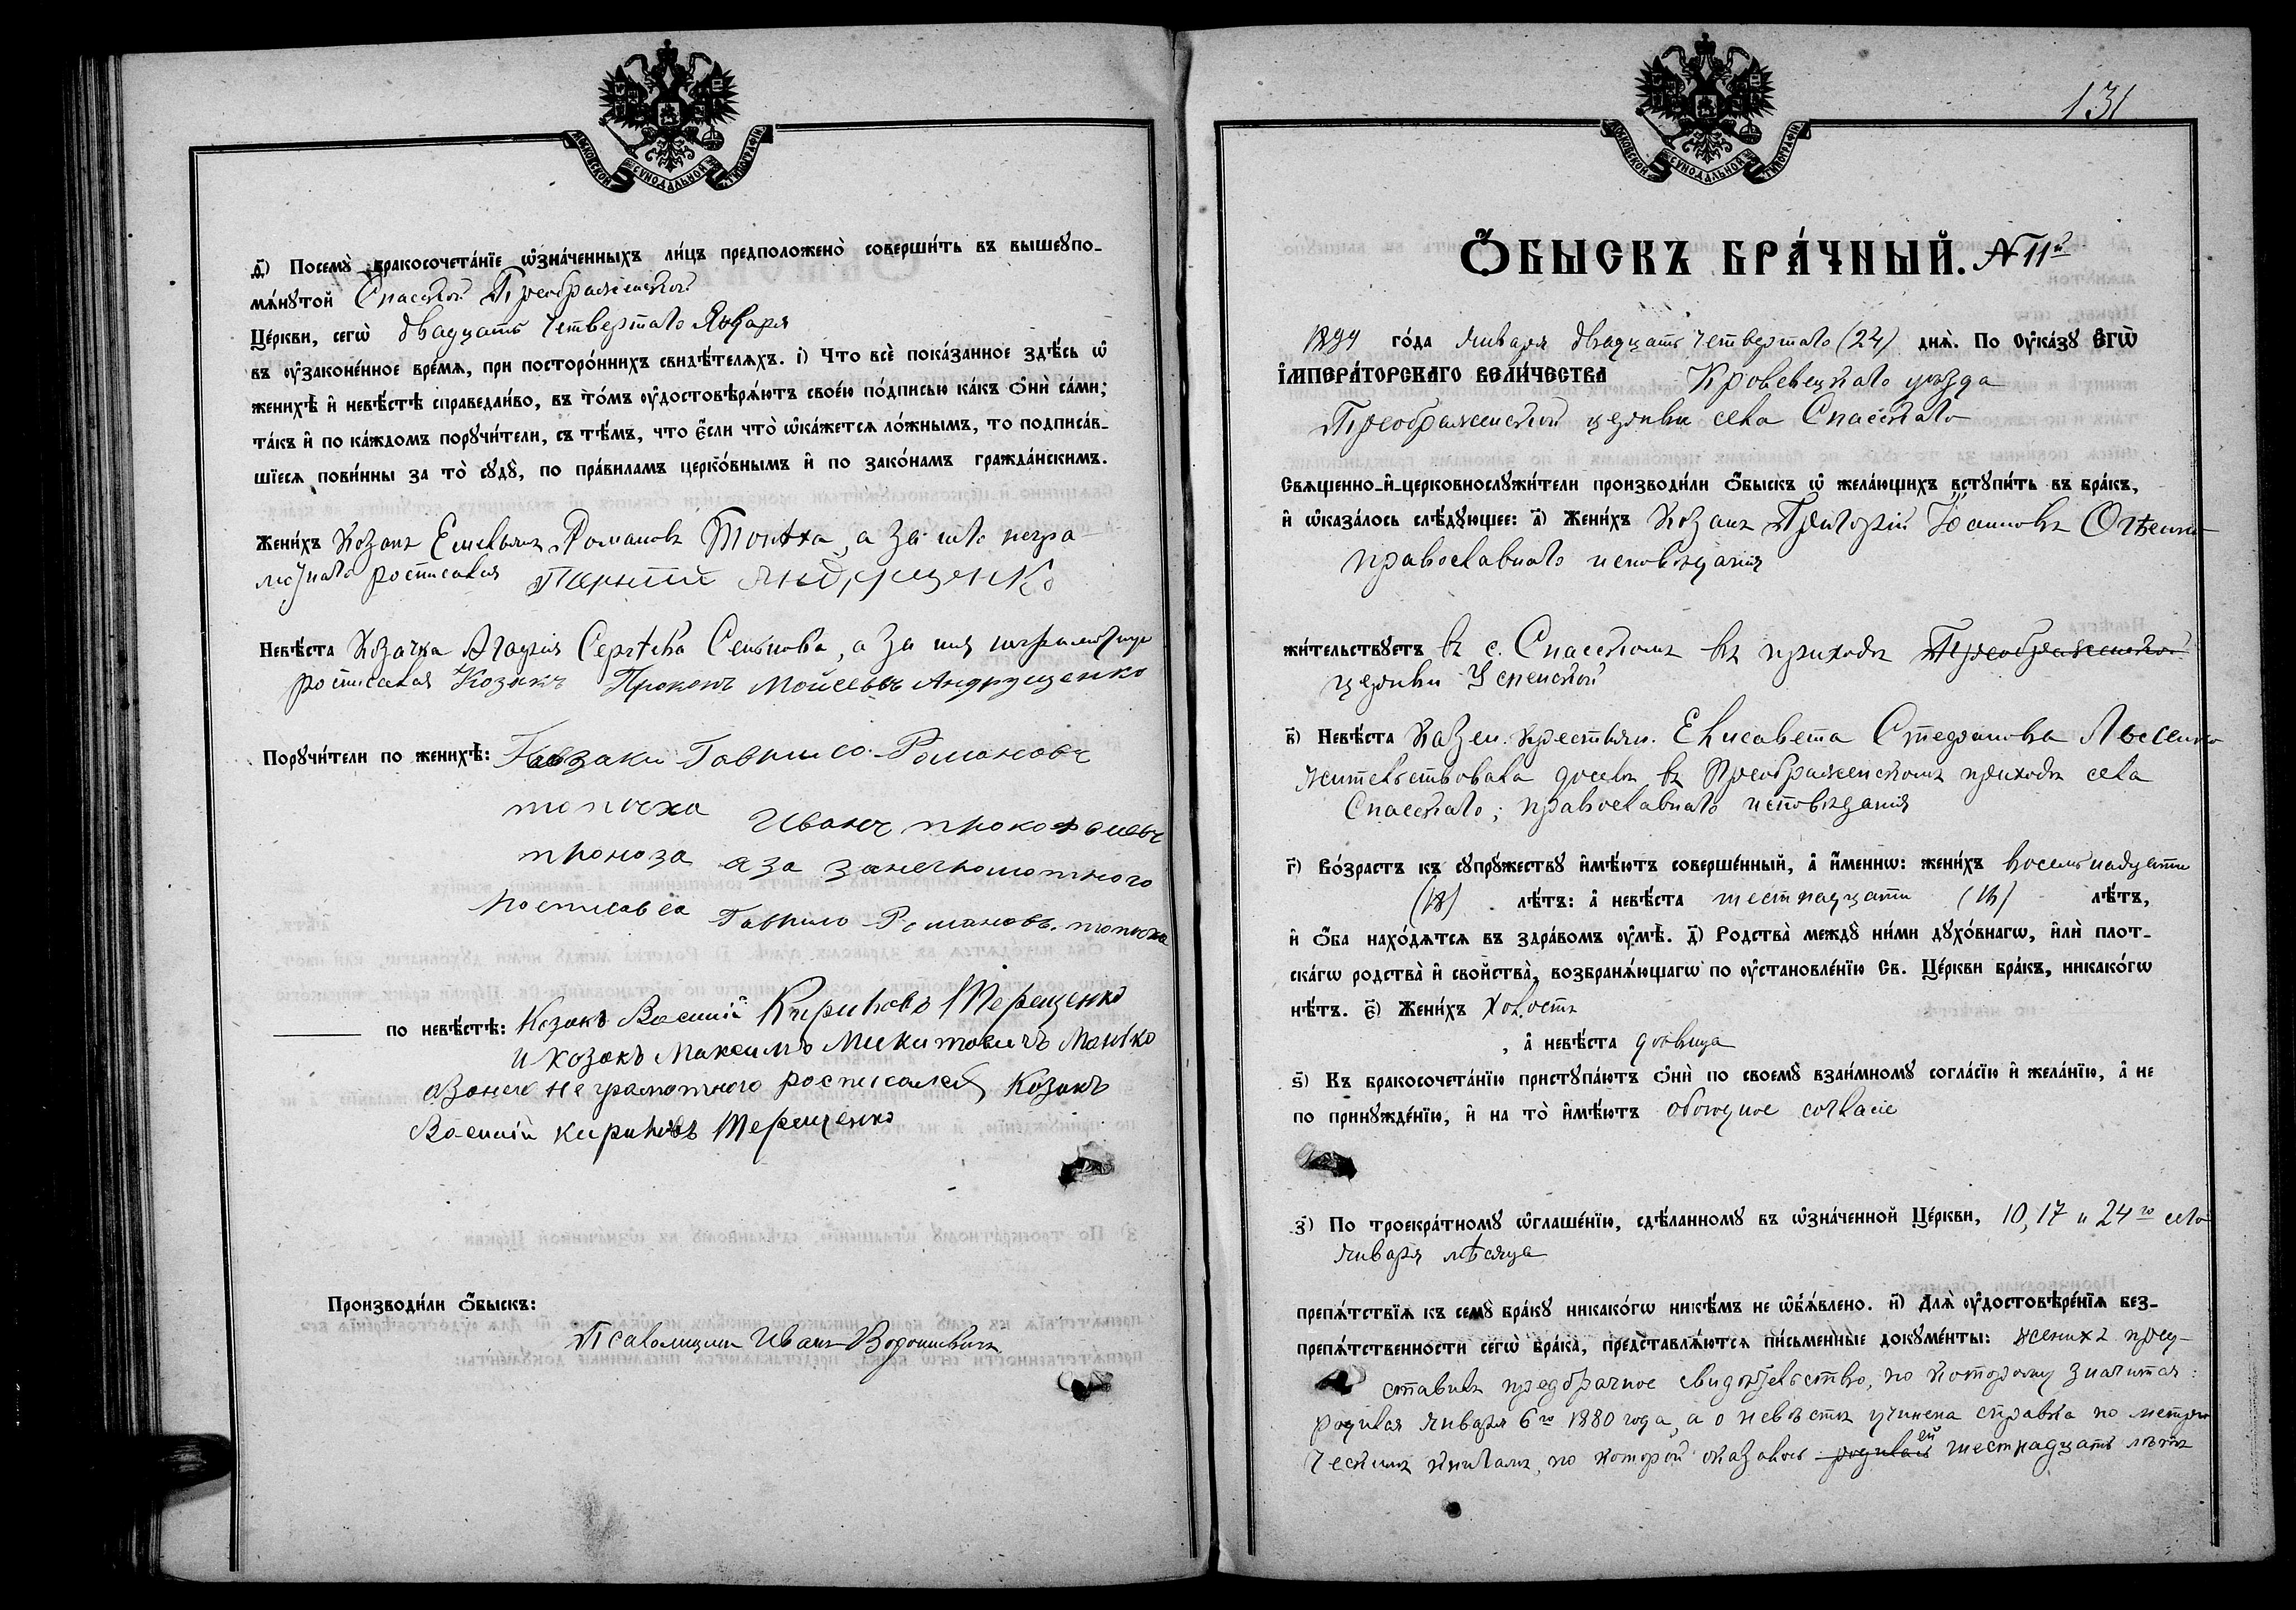 МОСКОВСКОЙ СѴНОДАЛЬНОЙ ТИПОГРАФІИ
ѳ҃) Посемꙋ̀ бракосочета́нїе ѡ҆зна́ченныхъ ли́цъ предположено̀ соверши́ть въ вышеꙋпо-
мѧ́нꙋтой Спасской Преображенской
Це́ркви, сегѡ̀ двадцать четвертаго Января
въ ᲂу҆законе́нное вре́мѧ, при посторо́ннихъ свидѣ́телѧхъ. і҃) Что всѐ пока́занное здѣ́сь ѡ҆
женихѣ̀ и҆ невѣ́стѣ справедли́во, въ то́мъ ᲂу҆достовѣрѧ́ютъ свое́ю по́дписью ка́къ ѻ҆нѝ са́ми;
та́къ и҆ по ка́ждомъ порꙋчи́тели, съ тѣ́мъ, что є҆́сли что̀ ѡ҆ка́жетсѧ ло́жнымъ, то подписа́в-
шїесѧ пови́нны за то̀ сꙋдꙋ̀, по пра́виламъ церко́внымъ и҆ по зако́намъ гражда́нскимъ.
Жени́хъ Козакъ Емельянъ Романовъ Топчха, а за него негра-
мотнаго росписался Андрущенко
Невѣ́ста Козачка Агафія Сергѣева, а за нея неграмотную
росписался Козакъ Прокопъ Мойсеевъ Андрущенко
Порꙋчи́тели по женихѣ̀: Козаки Гаврило Романовъ
топчха Иванъ прокофьевъ
проноза а за занеграмотного
росписався Гаврило Романовъ топчха
по невѣ́стѣ: Козакъ Василій Кириловъ Терещенко
и козакъ Максимъ Микитовичъ Манько
азанего неграмотного росписалсѧ Козакъ
Василій кириловъ Терещенко
Производи́ли ѻ҆́быскъ:
Псаломщикъ Иванъ
131
МОСКОВСКОЙ СѴНОДАЛЬНОЙ ТИПОГРАФІИ
Ѻ҆́БЫСКЪ БРА́ЧНЫЙ. № 11й
1899 го́да Января двадцать четвертаго (24) днѧ̀. По ᲂу҆ка́зꙋ Є҆гѡ̀
І҆МПЕРА́ТОРСКАГО ВЕЛИ́ЧЕСТВА Кролевецкаго уѣзда
Преображенской церкви села Спасскаго
Свѧщенно-и҆-церковнослꙋжи́тели производи́ли ѻ҆́быскъ ѡ҆ жела́ющихъ встꙋпи́ть въ бра́къ,
и҆ ѡ҆каза́лось слѣ́дꙋющее: а҃) Жени́хъ Козакъ Григорій Іоанновъ
православнаго исповѣданія
жи́тельствꙋетъ въ с. Спасскомъ въ приходѣ Преображенской
церкви Успенской
в҃) Невѣ́ста Казен. крестьян. Елисавета Стефанова Лысенко
жительствовала доселѣ въ Преображенскомъ приходѣ села
Спасскаго; православнаго исповѣданія
г҃) Во́зрастъ къ сꙋпрꙋ́жествꙋ и҆мѣ́ютъ соверше́нный, а҆ и҆́меннѡ: жени́хъ восемнадцати
(18) лѣ́тъ: а҆ невѣ́ста шестнадцати (16) лѣ́тъ,
и҆ ѻ҆́ба нахо́дѧтсѧ въ здра́вомъ ᲂу҆мѣ̀. д҃) Родства̀ междꙋ̀ ни́ми дꙋхо́внагѡ, и҆лѝ плот-
ска́гѡ родства̀ и҆ свойства̀, возбранѧ́ющагѡ по ᲂу҆становле́нїю Св. Це́ркви бра́къ, никако́гѡ
нѣ́тъ. є҃) Жени́хъ холостъ
, а҆ невѣ́ста дѣвица
ѕ҃) Къ бракосочета́нїю пристꙋпа́ютъ ѻ҆нѝ по своемꙋ̀ взаи́мномꙋ согла́сїю и҆ жела́нїю, а҆ не
по принꙋжде́нїю, и҆ на то̀ и҆мѣ́ютъ обоюдное согласіе
з҃) По троекра́тномꙋ ѡ҆глаше́нїю, сдѣ́ланномꙋ въ ѡ҆зна́ченной Це́ркви, 10, 17 и 24го сего
Января мѣсяца
препѧ́тствїѧ къ семꙋ̀ бра́кꙋ никако́гѡ никѣ́мъ не ѡ҆бъѧ́влено. и҃) Длѧ̀ ᲂу҆достовѣре́нїѧ без-
препѧ́тственности сегѡ̀ бра́ка, предста́влѧются пи́сьменные докꙋме́нты: женихъ пред-
ставилъ предбрачное свидѣтельство, по которому значится:
родился Января 6го 1880 года, а о невѣстѣ учинена справка по метри-
ческимъ книгамъ, по которой оказалось родилась ей шестнадцать лѣтъ